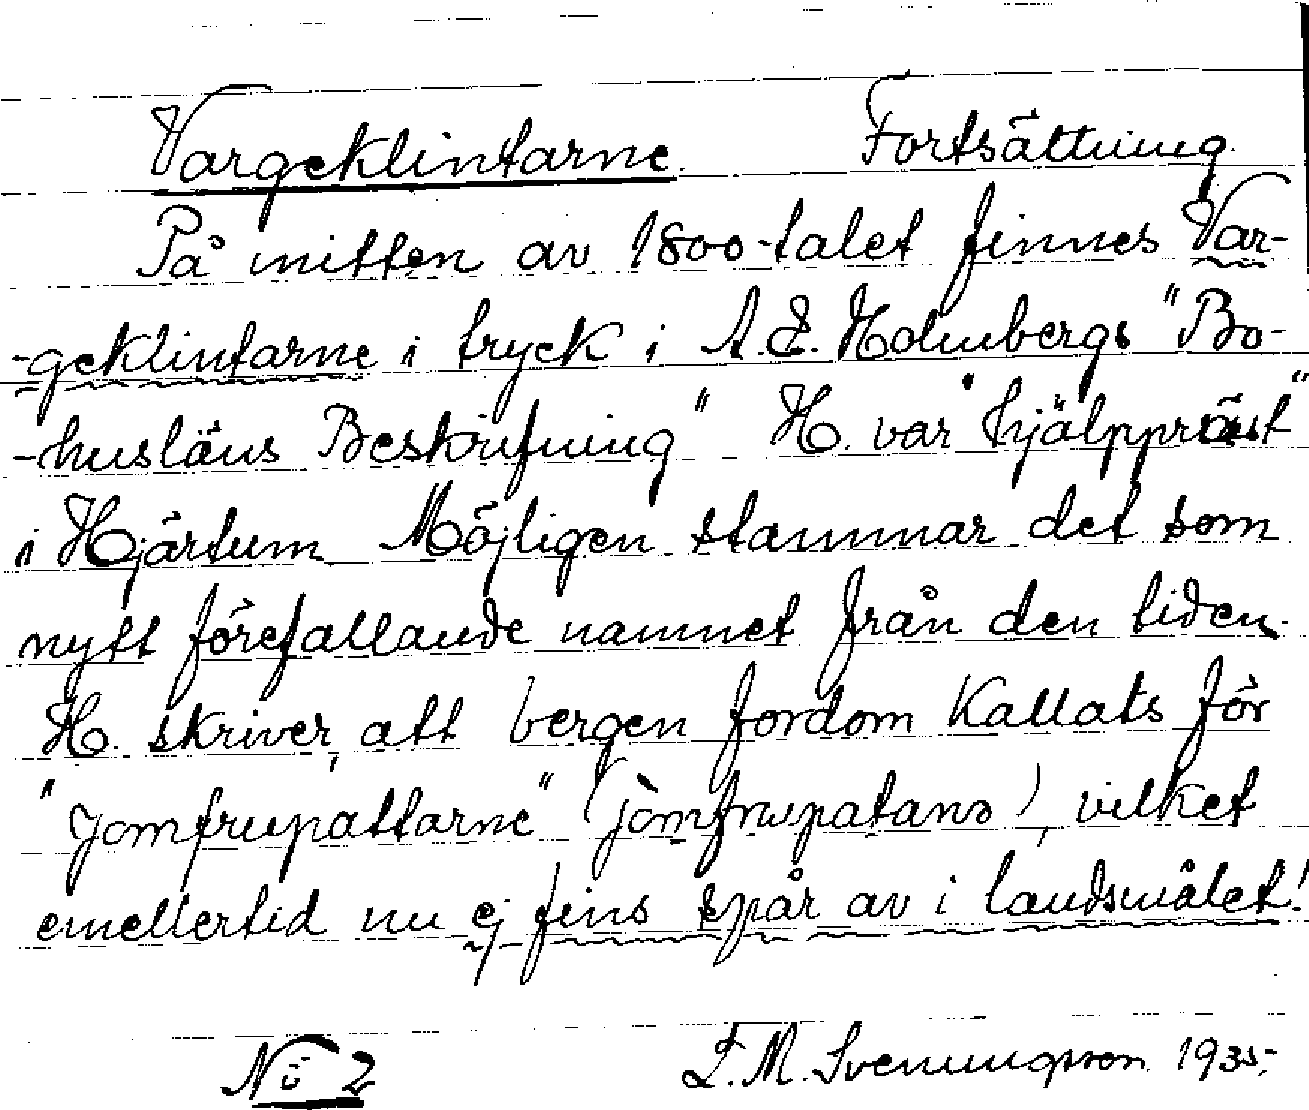 Vargeklintarne. Fortsättning.
På mitten av 1800-talet finnes Var-
-geklintarne i tryck i A.E. Holmbergs "Bo-
-husläns Beskrifning" H. var "hjälppräst"
i Hjärtum. Möjligen stammar det som
nytt förefallande namnet från den tiden.
H. skriver, att bergen fordom Kallats för
"Jomfrupattarne" (jòmfrupatanɔ), vilket
emellertid nu ej fins spår av i landsmålet!
No 2 L.M. Svenungsson 1935.